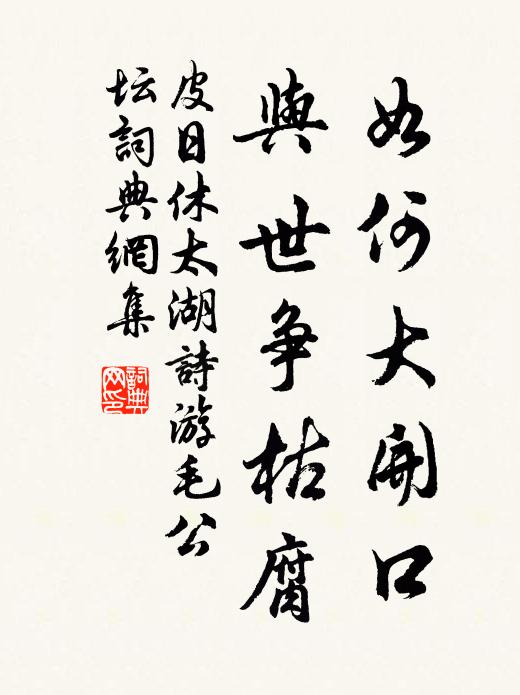 如何大開口
與世争枯腐
皮日休太湖詩游毛公
坛詞典網集
詞典
网印